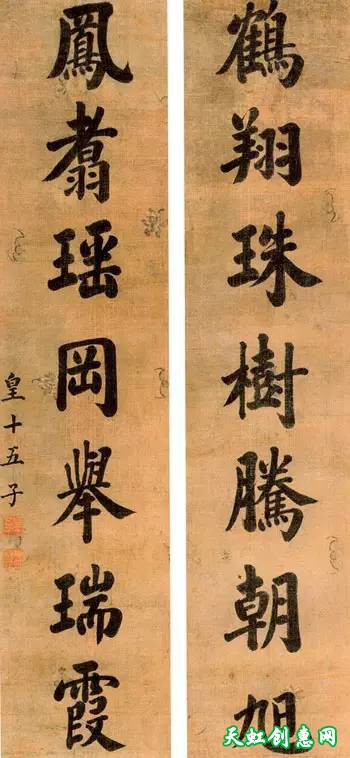 鶴翔珠樹騰朝旭
鳳翥瑶岡舉瑞霞
皇十五子
天虹创惠网